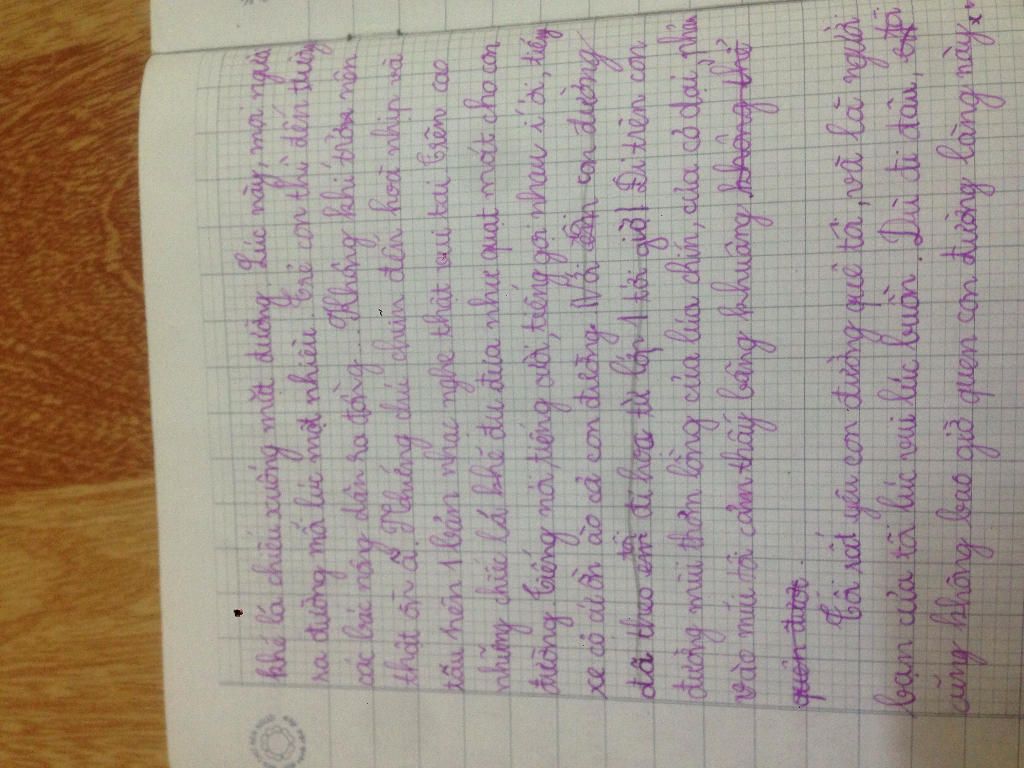 khẽ lá chiếu xuống mặt đường. Lúc này, mọi người
ra đường mỗi lúc một nhiều. Trẻ con thì đến trường
các bác nông dân ra đồng... Không khí trở nên
thật ồn ã. Những chú chim đến hoà nhịp và
tấu nên 1 bản nhạc nghe thật vui tai. Trên cao
những chiếc lá khẽ đu đưa như quạt mát cho con
đường. Tiếng nói, tiếng cười, tiếng gọi nhau í ới, tiếng
xe cộ cứ ồn ào cả con đường. Và con đường
đã theo tôi đi học từ lớp 1 tới giờ! Đi trên con
đường mùi thơm lồng của lúa chín, của cỏ dại phả
vào mũi tôi cảm thấy bâng khuâng không thể
quên được.
Tôi rất yêu con đường quê tôi, và là người
bạn của tôi lúc vui lúc buồn. Dù đi đâu, tôi
cũng không bao giờ quen con đường làng này